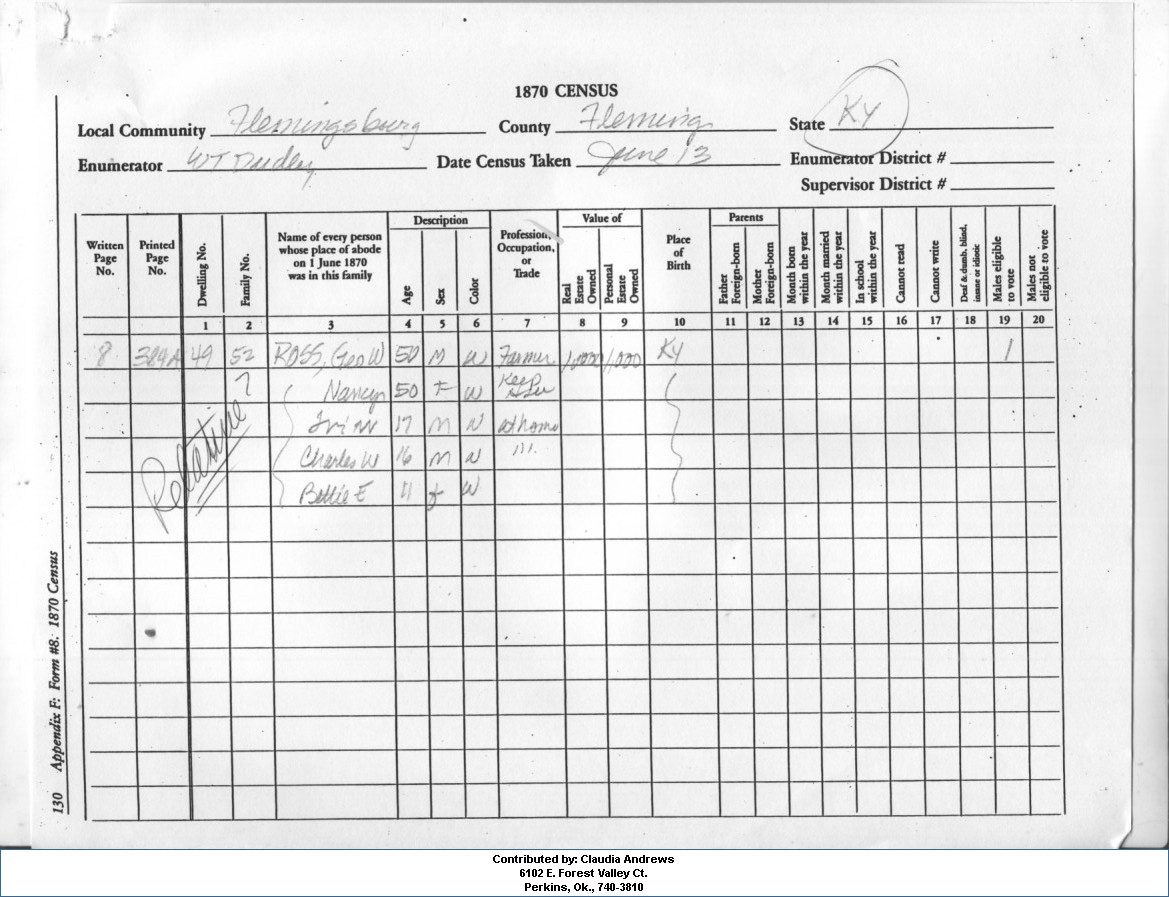 1870 CENSUS
Local Community Flemingsbourg County Fleming State KY
Enumerator WT Dudley Date Census Taken June 13 Enumerator District #
Supervisor District #
Written Page No.
Printed Page No.
Dwelling No.
Family No.
Name of every person whose place of abode on 1 June 1870 was in this family
Description
Age
Sex
Color
Profession, Occupation, or Trade
Value of
Real Estate Owned
Personal Estate Owned
Place of Birth
Parents
Father Foreign-born
Mother Foreign-born
Month born within the year
Month married within the year
In school within the year
Cannot read
Cannot write
Deaf & dumb, blind, insane or idiotic
Males eligible to vote
Males not eligible to vote
1 2 3 4 5 6 7 8 9 10 11 12 13 14 15 16 17 18 19 20
8 389A 49 52 ROSS, Geo W 50 M W Farmer 1,000 1,000 KY 1
Nancy 50 F W Keep
17 M W at home
Charles W 16 M W
Bettie E 11 f W
Relative ?
130 Appendix F: Form #8. 1870 Census
Contributed by: Claudia Andrews
6102 E. Forest Valley Ct.
Perkins, Ok., 740-3810